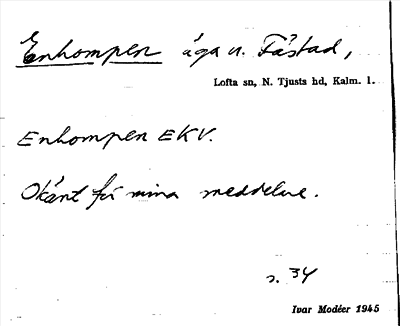 Enhompen äga u. Fåstad,
Lofta sn, N. Tjusts hd, Kalm. l.
Enhompen EKV.
Okänt för mina meddelare.
s. 34
Ivar Modéer 1945